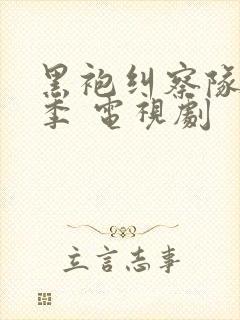 黑袍纠察队
季 電視劇
立言志事